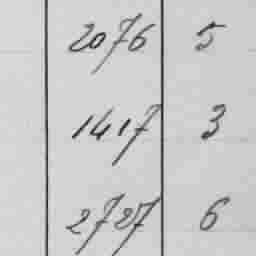 2076 5
1417 3
2727 6